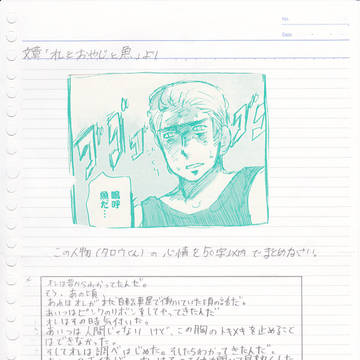 No.
Date
文章「オレとおやじと魚」より
ガガガガ
嗚呼
魚だ…
この人物(タロウくん)の心情を50字以内でまとめなさい。
オレは昔から分かってたんだ。
そう、あの頃、
あれはオレがまだ自転車屋で働いていた頃の話だ。
あいつはピンクのリボンをしてやってきたんだ
オレはその時気付いた。
あいつは人間じゃない けど、この胸のトキメキを止めること
はできなかった。
そしてオレは調べはじめた。そしたらわかってきたんだ。